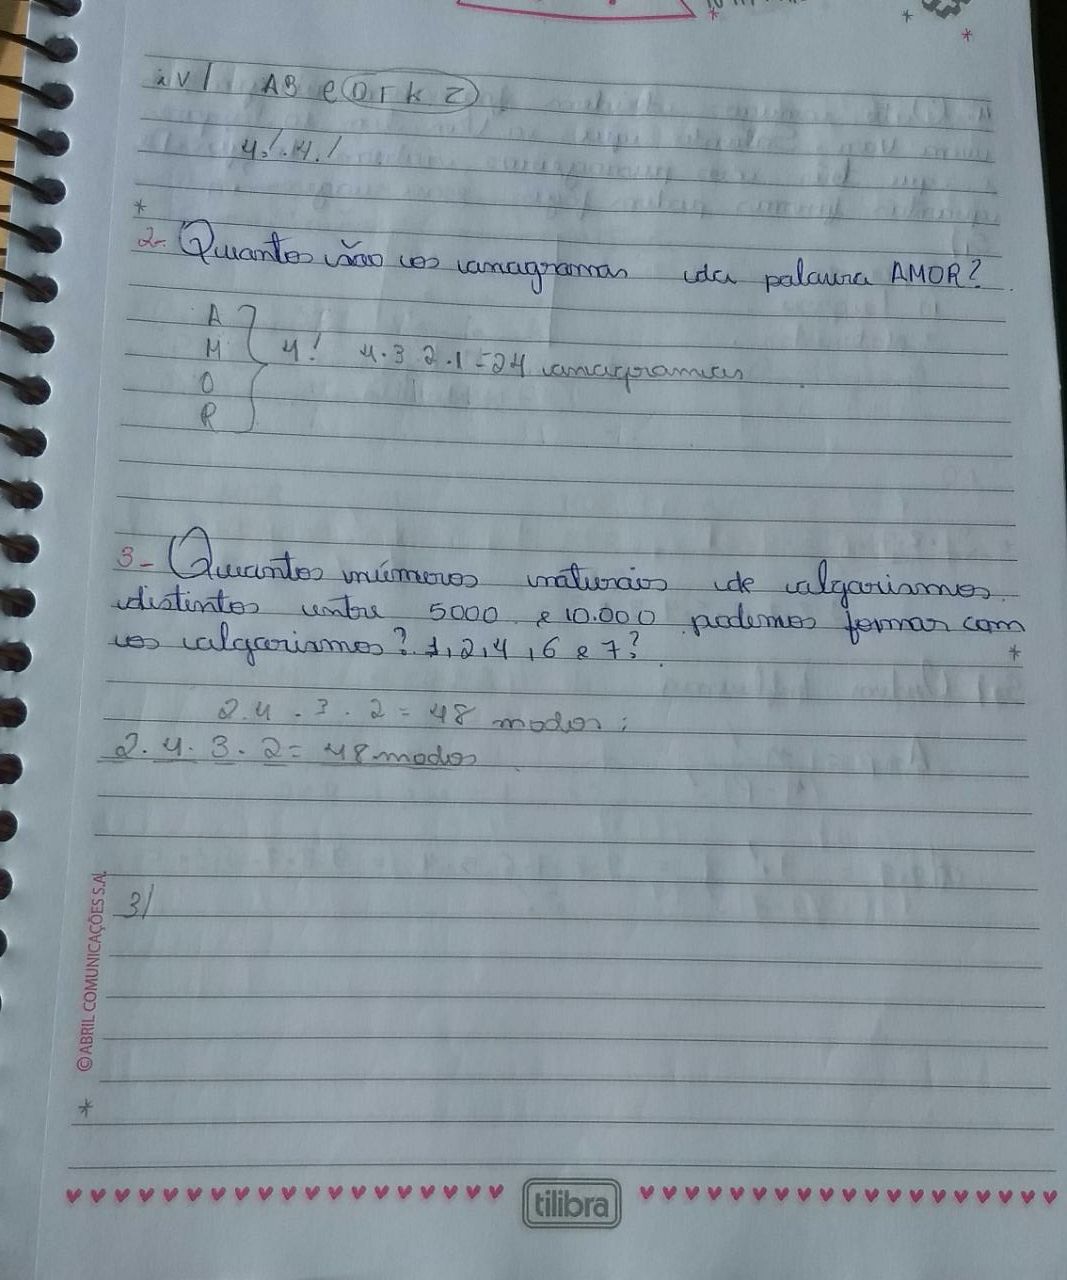 iv) AB e O r k z
4! . 4!
2- Quantos são os anagramas da palavra AMOR?
A
M
O
R
4! 4.3 2.1 = 24 anagramas
3- Quantos números naturais de algarismos
distintos entre 5000 e 10.000 podemos formar com
os algarismos? 1, 2, 4, 6 e 7?
2.4 . 3 . 2 = 48 modos;
2. 4. 3. 2 = 48 modos
3)
©ABRIL COMUNICAÇÕES S.A.
tilibra